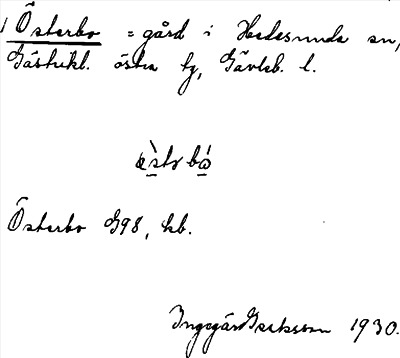 1 Österbo = gård i Hedesunda sn,
Gästrikl. östra tg, Gävleb. l.
Österbo G98, kb.
Ingegärd Eriksson 1930.